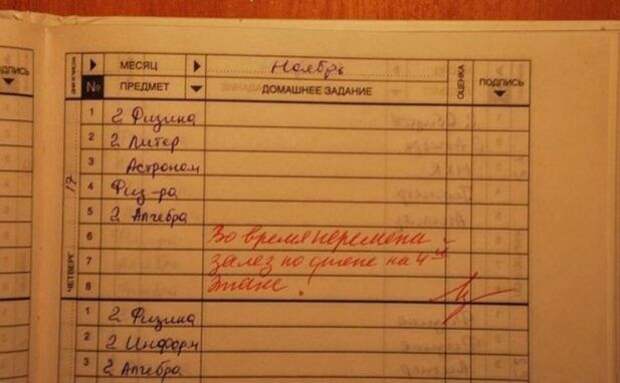 МЕСЯЦ Ноябрь ОЦЕНКА ПОДПИСЬ
ПОДПИСЬ № ПРЕДМЕТ ДОМАШНЕЕ ЗАДАНИЕ
1 2 Физика
2 2 Литер
3 Астроном
17
4 Физ-ра
5 2 Алгебра
6 Во время перемены
7 залез по стене на 4-й
ЧЕТВЕРГ
8 этаж.
1 2 Физика
2 2 Информ
3 2 Алгебра